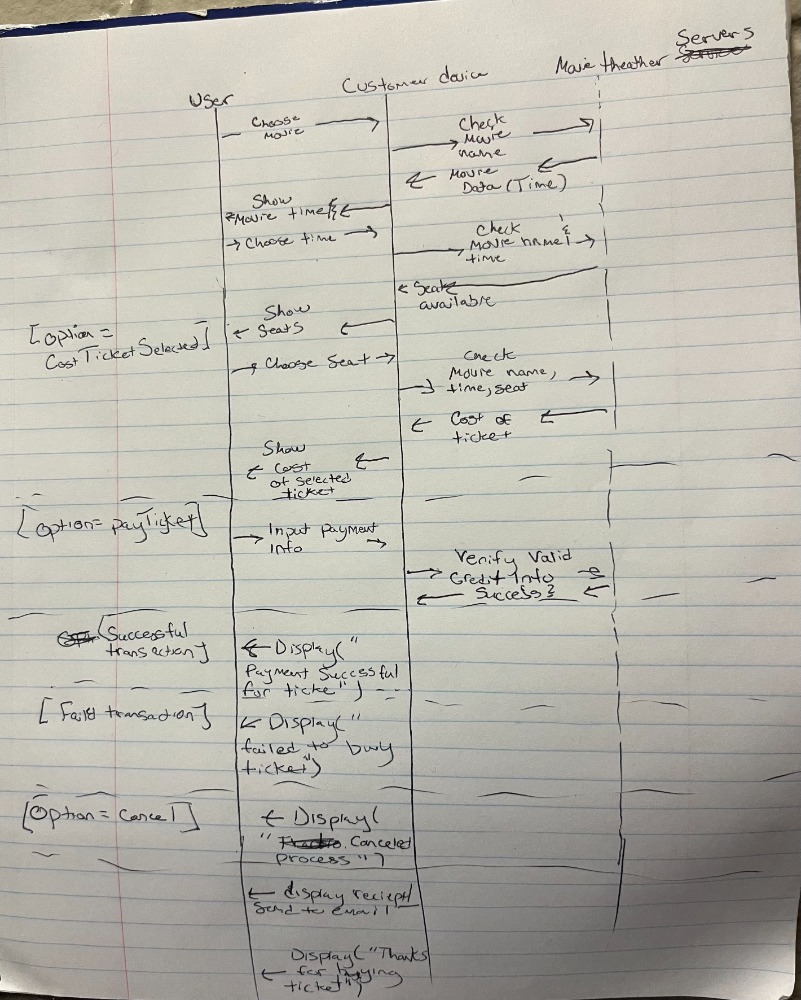 User
Customer device
Movie theather Servers
Choose
Movie
Check
Movie
name
Movie
Data (Time)
Show
Movie time
Choose time
Check
Movie name &
time
Seats
available
Show
Seats
[option =
Cost Ticket Selected]
Choose Seat
Check
Movie name,
time, seat
Cost of
ticket
Show
Cost
of selected
ticket
[option = pay Ticket]
Input payment
Info
Verify Valid
Credit Info
Success?
[Successful
transaction]
Display("
Payment Successful
for ticke")
[Faild transaction]
Display("
failed to buy
ticket")
[Option = Cancel]
Display(
" Canceled
process")
display reciept/
Send to email
Display("Thanks
for buying
ticket")